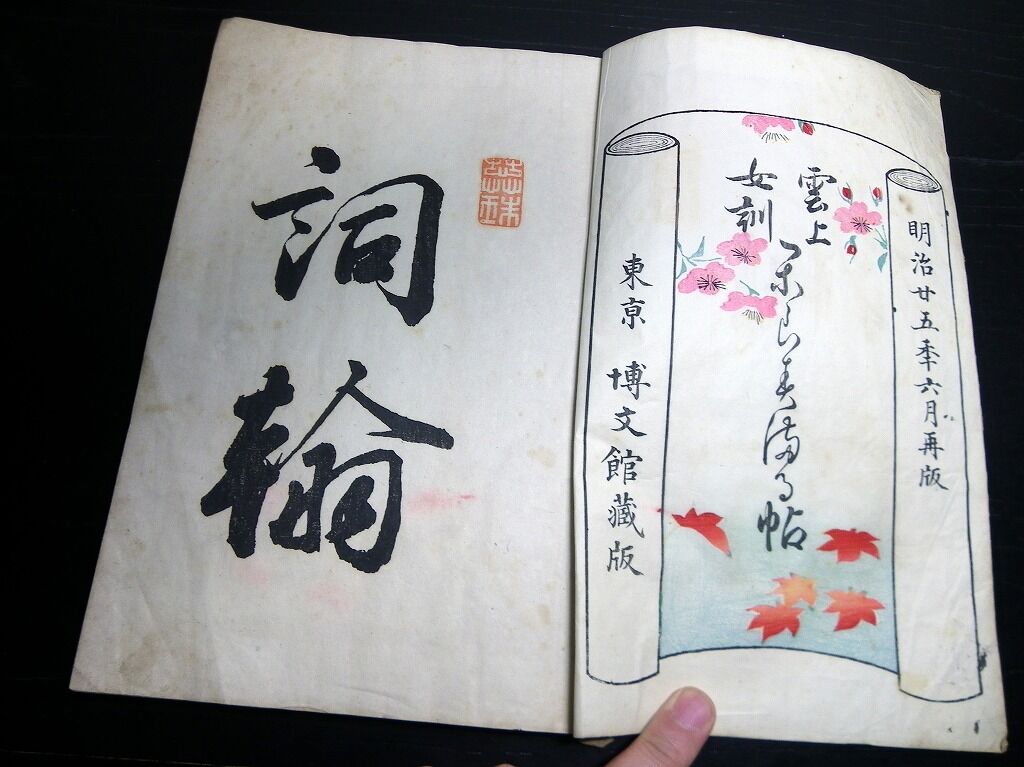 明治廿五季六月再版
雲上
女訓
帖
東京 博文館藏版
蕊珠
詞翰